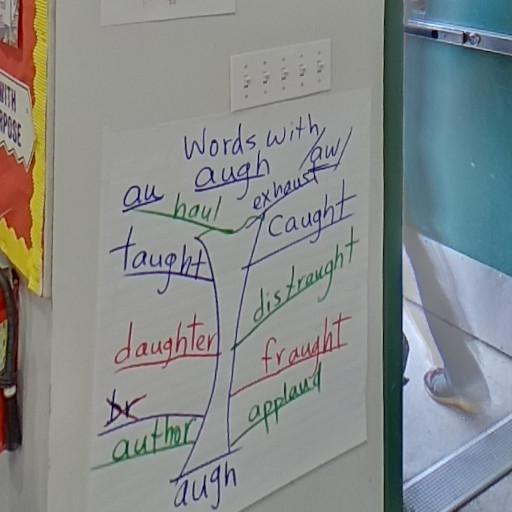 WITH
RPOSE
Words with
au augh /aw/
haul exhaust
taught caught
distraught
daughter fraught
br applaud
author
augh